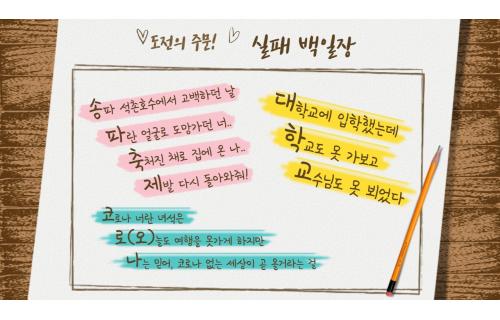 도전의 주문! 실패 백일장
송파 석촌호수에서 고백하던 날
파란 얼굴로 도망가던 너..
축처진 채로 집에 온 나..
제발 다시 돌아와줘!
대학교에 입학했는데
학교도 못 가보고
교수님도 못 뵈었다
코로나 너란 녀석은
로(오)늘도 여행을 못가게 하지만
나는 믿어, 코로나 없는 세상이 곧 올거라는 걸